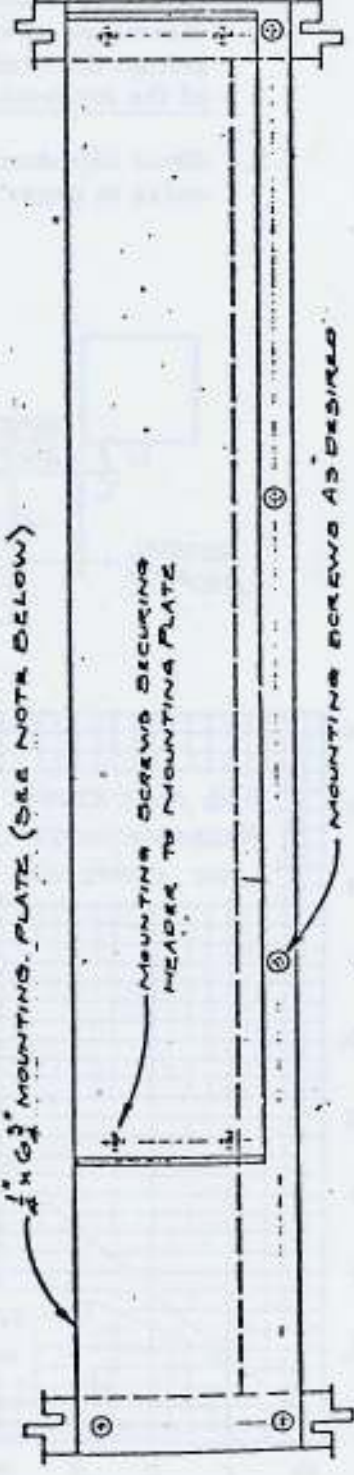 1/4" x 6 3/4" MOUNTING PLATE (SEE NOTE BELOW)
MOUNTING SCREWS SECURING
HEADER TO MOUNTING PLATE
MOUNTING SCREWS AS DESIRED